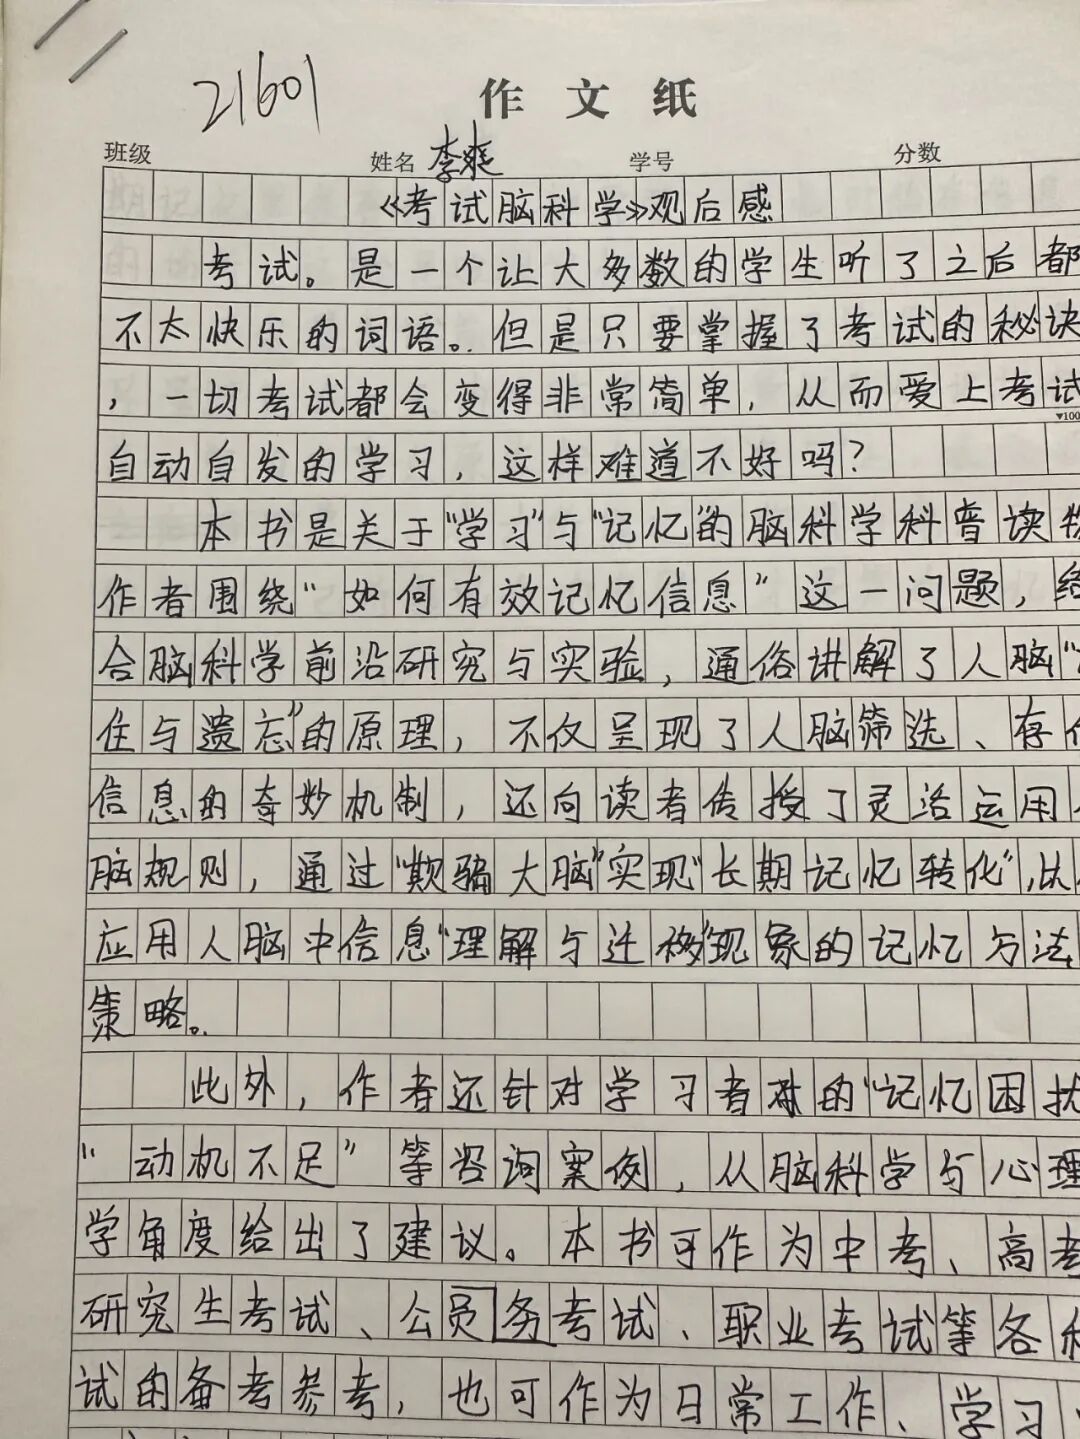 21601
作文纸
班级 姓名 李爽 学号 分数
《考试脑科学》观后感
考试。是一个让大多数的学生听了之后都
不太快乐的词语。但是只要掌握了考试的秘诀
，一切考试都会变得非常简单，从而爱上考试
▼100
自动自发的学习，这样难道不好吗？
本书是关于“学习”与“记忆”的脑科学科普读物
作者围绕“如何有效记忆信息”这一问题，结
合脑科学前沿研究与实验，通俗讲解了人脑“
住与遗忘”的原理，不仅呈现了人脑筛选、存
信息的奇妙机制，还向读者传授了灵活运用
脑规则，通过“欺骗大脑”实现“长期记忆转化”，以
应用人脑中信息“理解与迁移”现象的记忆方法
策略。
此外，作者还针对学习者对的“记忆困扰
“动机不足”等咨询案例，从脑科学与心理
学角度给出了建议。本书可作为中考、高考
研究生考试、公员务考试、职业考试等各
试的备考参考，也可作为日常工作、学习